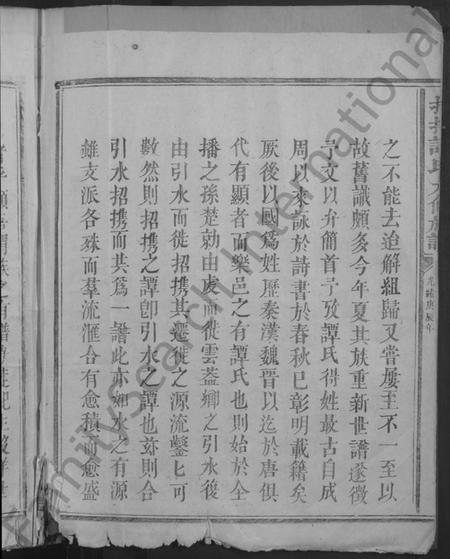 之不能去迨解組歸又嘗屢主不一至以
故舊識頗多今年夏其族重新世譜遂徵
予文以弁簡首予攷譚氏得姓最古自成
周以來詠於詩書於春秋巳彰明載籍矣
厥後以國為姓歷秦漢魏晉以迄於唐俱
代有顯者而樂邑之有譚氏也則始於全
播之孫楚勍由虔而徙雲蓋鄉之引水後
由引水而徙招携其遷徙之源流鑿匕可
數然則招携之譚卽引水之譚也玆則合
引水招携而共為一譜此亦如水之有源
雖支派各殊而羣流滙合有愈積而愈盛
譚氏 修族譜
光緒庚辰年
FamilySearch International